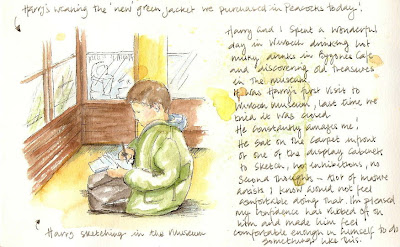 Harry's wearing the 'new' green jacket we purchased in Peacocks today!
Harry and I spent a wonderful
day in Wisbech drinking hot
milky drinks in Café
and discovering old treasures
in the museum.
It was Harry's first visit to
Wisbech museum, last time we
tried it was closed.
He constantly amazes me!
He sat on the carpet infront
of one of the display cabinets
to sketch, no inhibitions, no
second thoughts – lot of mature
artists I know would not feel
comfortable doing that. I'm pleased
my confidence has rubbed off on
him and made him feel
comfortable enough in himself to do
something like this.
Harry sketching in the museum